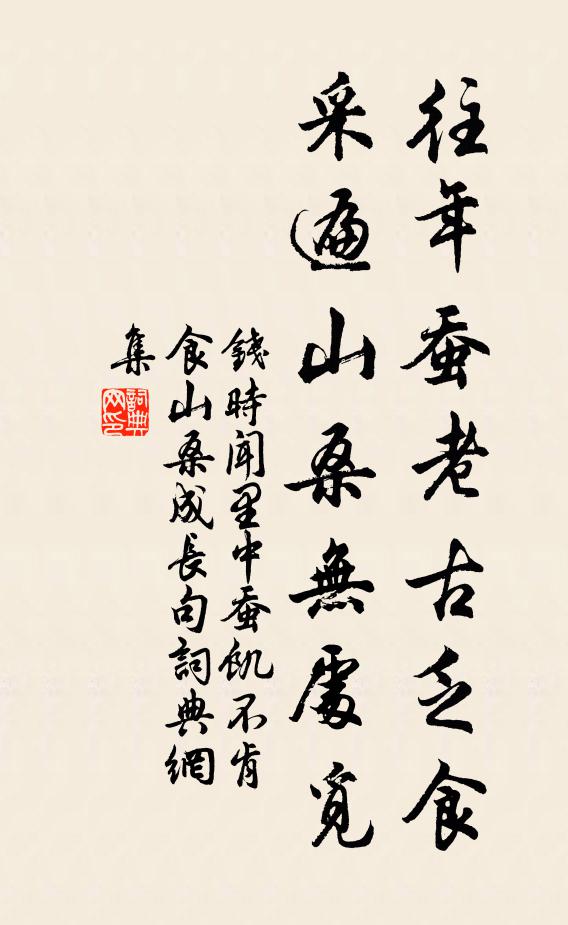 往年蚕老古乏食
采遍山桑無處覓
錢時聞里中蚕飢不肯
食山桑成長句詞典網
集
詞典
网印